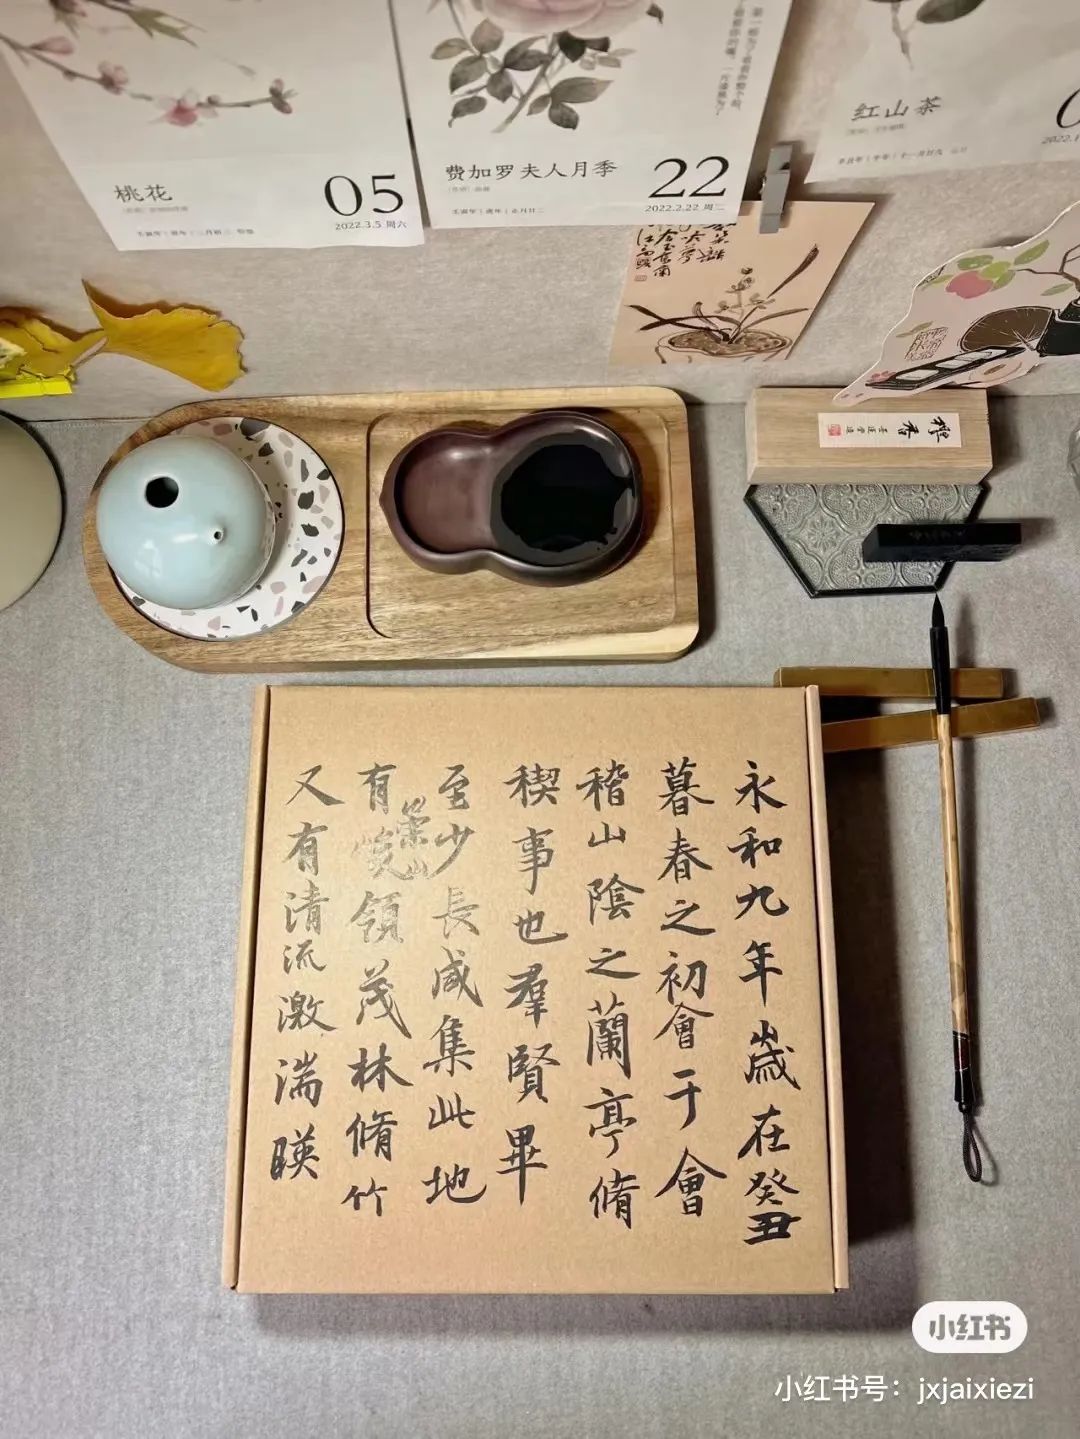 桃花
05
2022.3.5 周六
费加罗夫人月季
22
2022.2.22 周二
壬寅年 | 虎年 | 正月廿二
红山茶
永和九年歲在癸丑
暮春之初會于會
稽山陰之蘭亭脩
稧事也羣賢畢
至少長咸集此地
有崇山峻領茂林脩竹
又有清流激湍暎
小红书
小红书号：jxjaixiezi